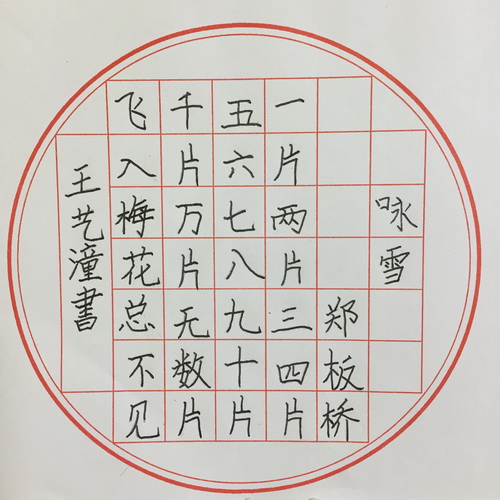 咏雪
郑板桥
一片两片三四片
五六七八九十片
千片万片无数片
飞入梅花总不见
王艺潼書